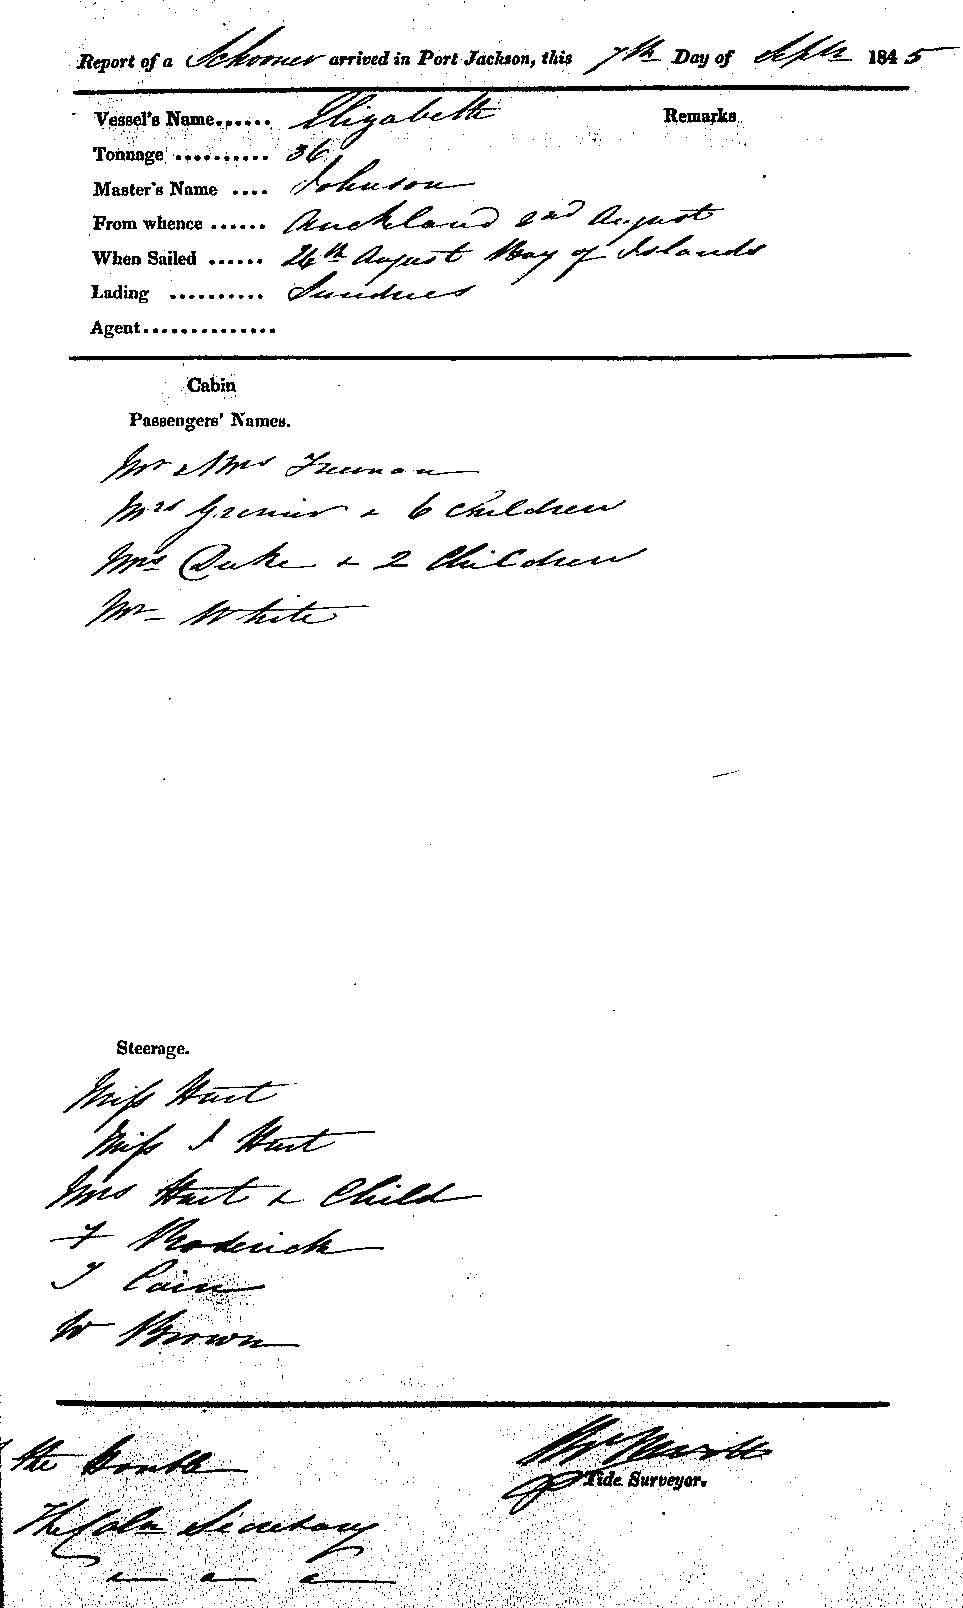 Report of a Schooner arrived in Port Jackson, this 7th Day of Septr 1845
Vessel's Name...... Elizabeth Remarks
Tonnage .......... 36
Master's Name .... Johnson
From whence ...... Auckland 2nd August
When Sailed ...... 26th August Bay of Islands
Lading .......... Sundries
Agent..............
Cabin
Passengers' Names.
Mr & Mrs Freeman
Mrs Grenier & 6 Children
Mrs Duke & 2 Children
Mr White
Steerage.
Miss Hart
Miss J Hart
Mrs Hart & Child
F Broderick
J Cain
W Brown
the Honble
Tide Surveyor.
The Coln Secretary